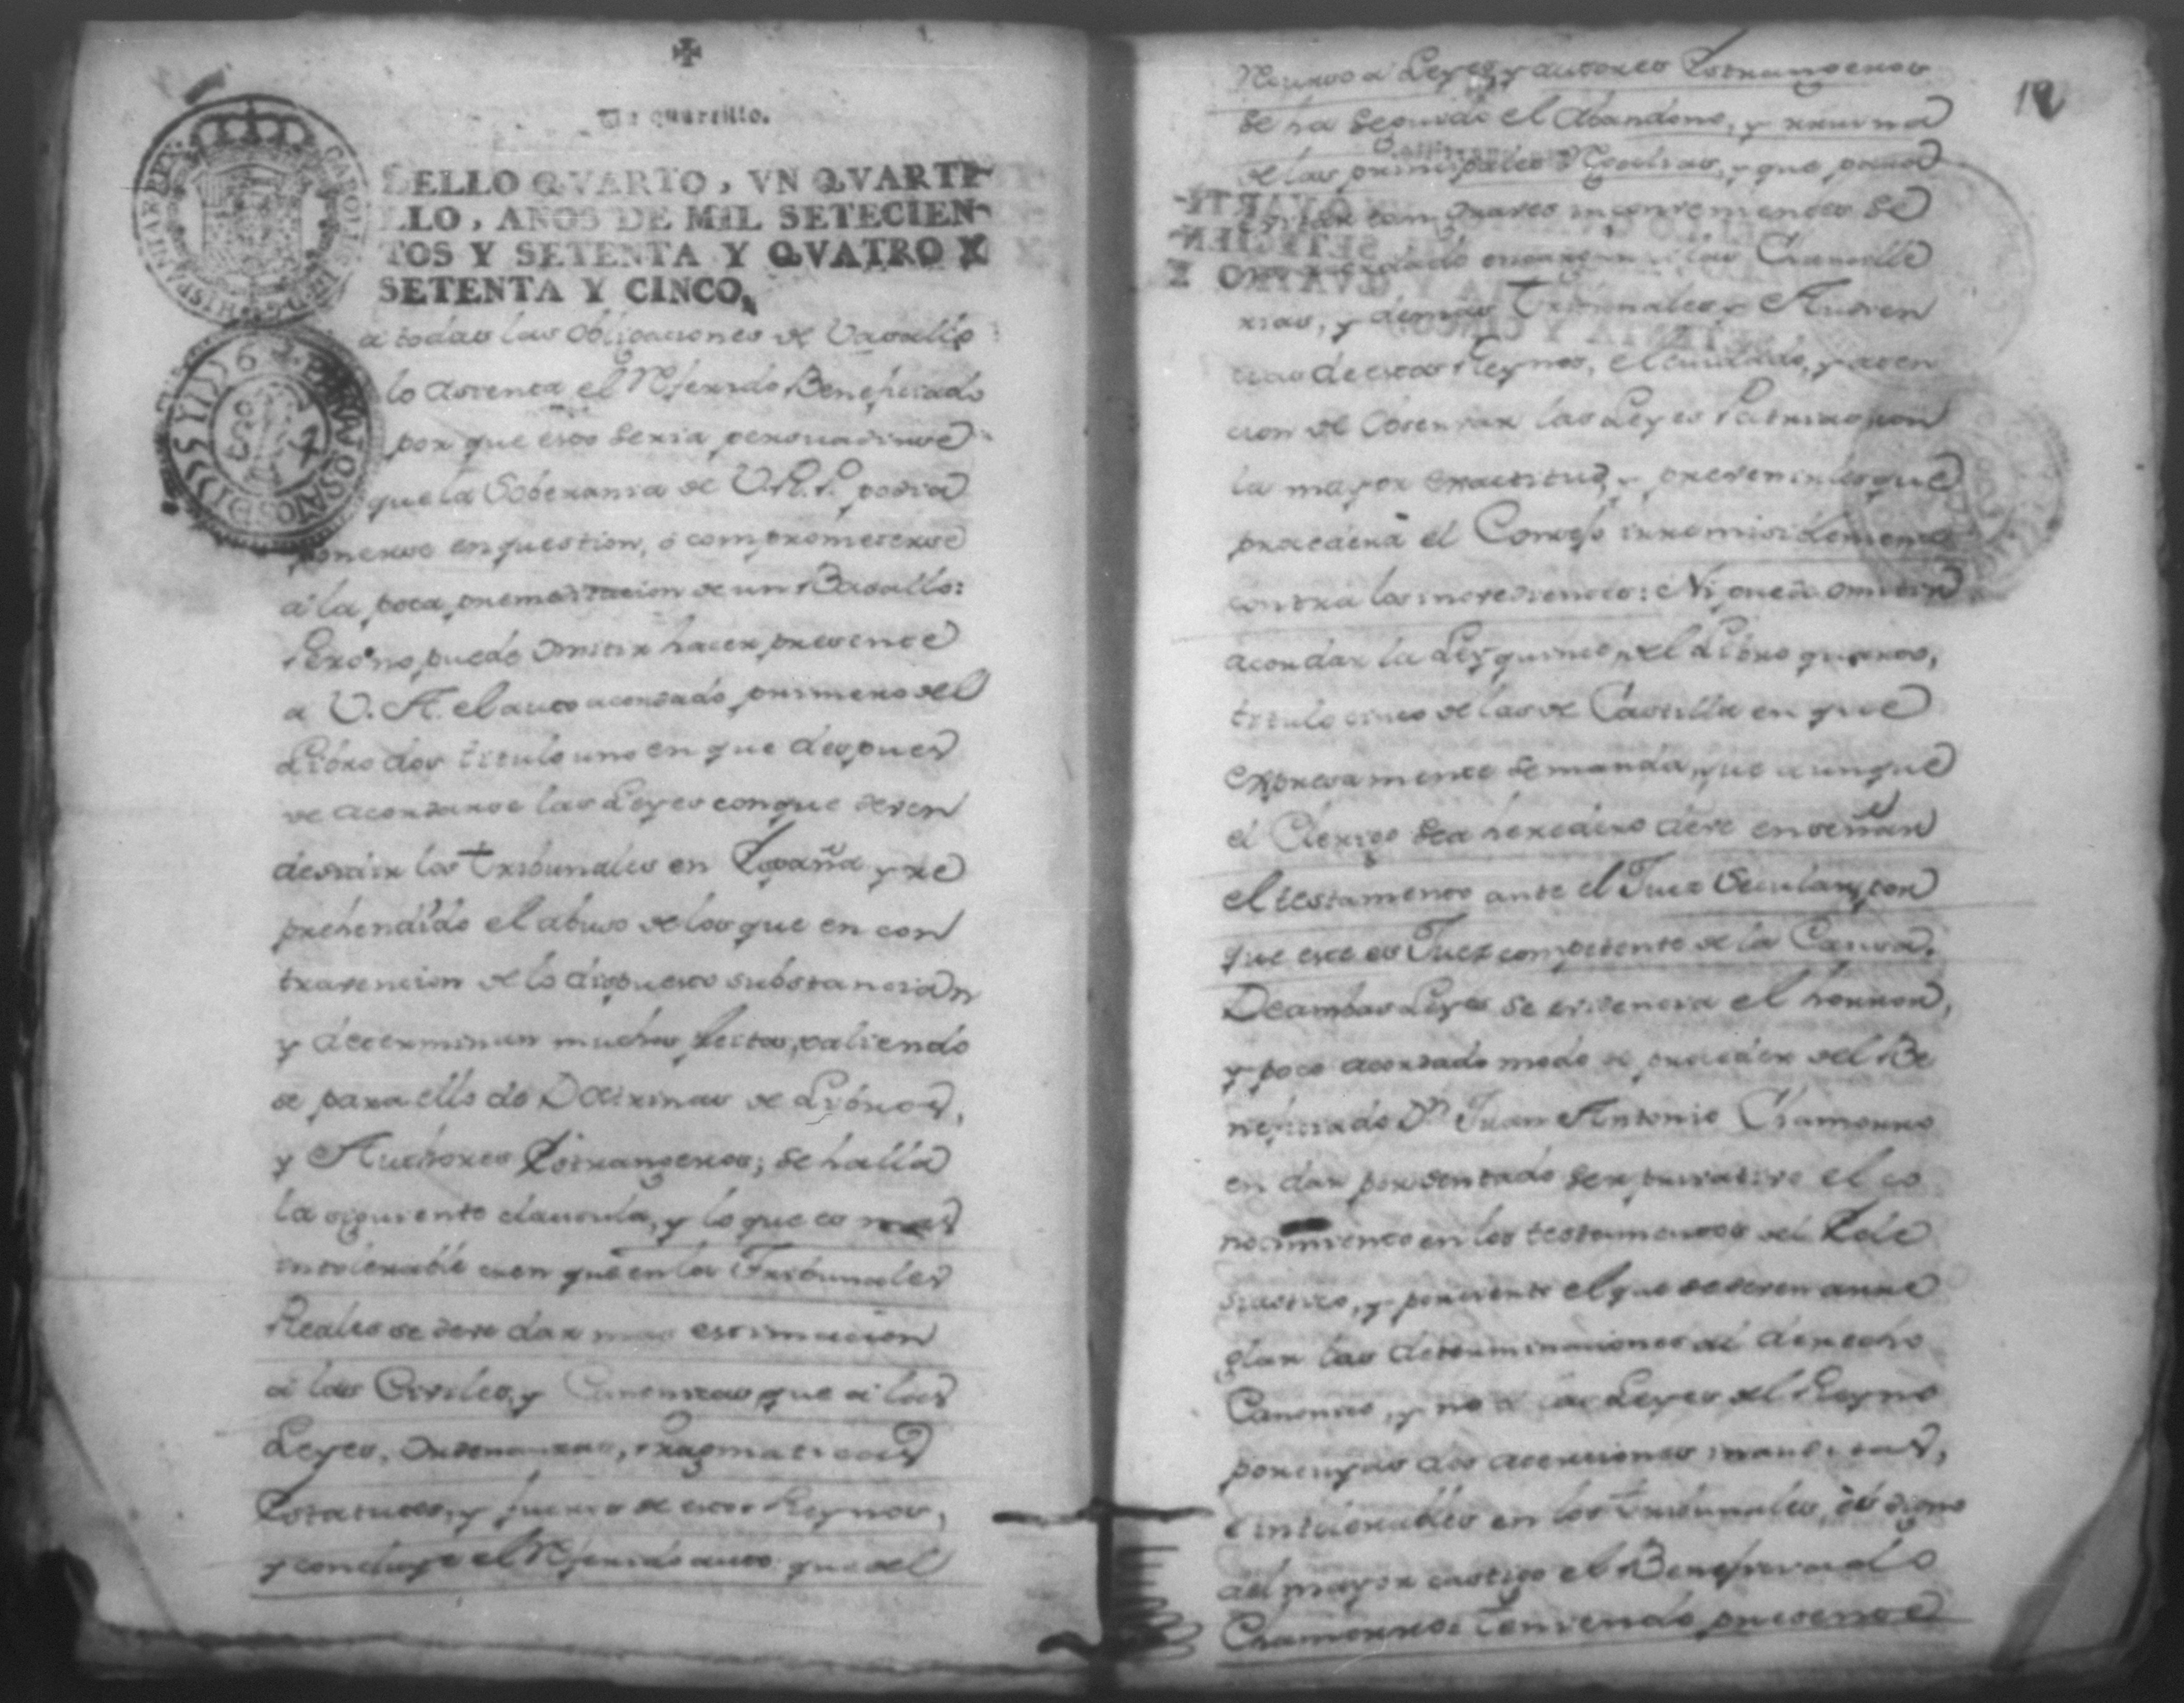 Un quartillo.
SELLO QVARTO, VN QVARTI-
LLO, AÑOS DE MIL SETECIEN-
TOS Y SETENTA Y QVATRO Y
SETENTA Y CINCO.
a todas las obligaciones de Vasallo
lo asienta el Referido Beneficiado
por que esto seria persuadirse
que la Soberania de V.R.P. podia
ponerse en question, ó comprometerse
a la poca premeditacion de un Basallo:
Pero no puedo omitir hacer presente
a V. A. el auto acordado primero del
Libro dos titulo uno en que despues
de acordarse las Leyes con que deven
decidir los tribunales en España y re
prehendido el abuso de los que en con
travencion de lo dispuesto substancian
y determinan muchos pleitos, valiendo
se para ello de Doctrinas de Libros,
y Authores Estrangeros; se halla
la siguiente clausula, y lo que es mas
intolerable creen que en los Tribunales
Reales se deve dar mas estimacion
á las Civiles, y Canonicas que á las
Leyes, Ordenanzas, Pragmaticas,
Estatutos, y fueros de estos Reynos,
y concluye el Referido auto: que del
12
Recurso a Leyes y autores Estrangeros
se ha seguido el Abandono, y ruina
de las principales Regalias, y que para
evitar tan graves inconvenientes se
acordado encargar a las Chancille
rias, y demas Tribunales, y Audien
cias de estos Reynos, el cuidado, y aten
cion de observar las Leyes Patrias con
la mayor exactitud, y prevenirles que
procederá el Consejo irremisiblemente
contra los inovedientes: Ni puedo omitir
acordar la Ley quince del Libro quinto,
titulo cinco de las de Castilla en que
expresamente se manda, que aunque
el Clerigo sea heredero deve enseñar
el testamento ante el Juez Secular, por
que este es Juez competente de la Causa.
De ambas Leyes se evidencia el horror,
y poco acordado modo de proceder del Be
neficiado Dn. Juan Antonio Chamorro
en dar por sentado ser privativo el co
nocimiento en los testamentos del Ecle
siastico, y por el que se deven arre
glar las determinaciones al derecho
Canonico, y no a las Leyes del Reyno
por cuyas dos aserciones inauditas,
é intolerables en los tribunales, és digno
del mayor castigo el Beneficiado
Chamorro: teniendo presente